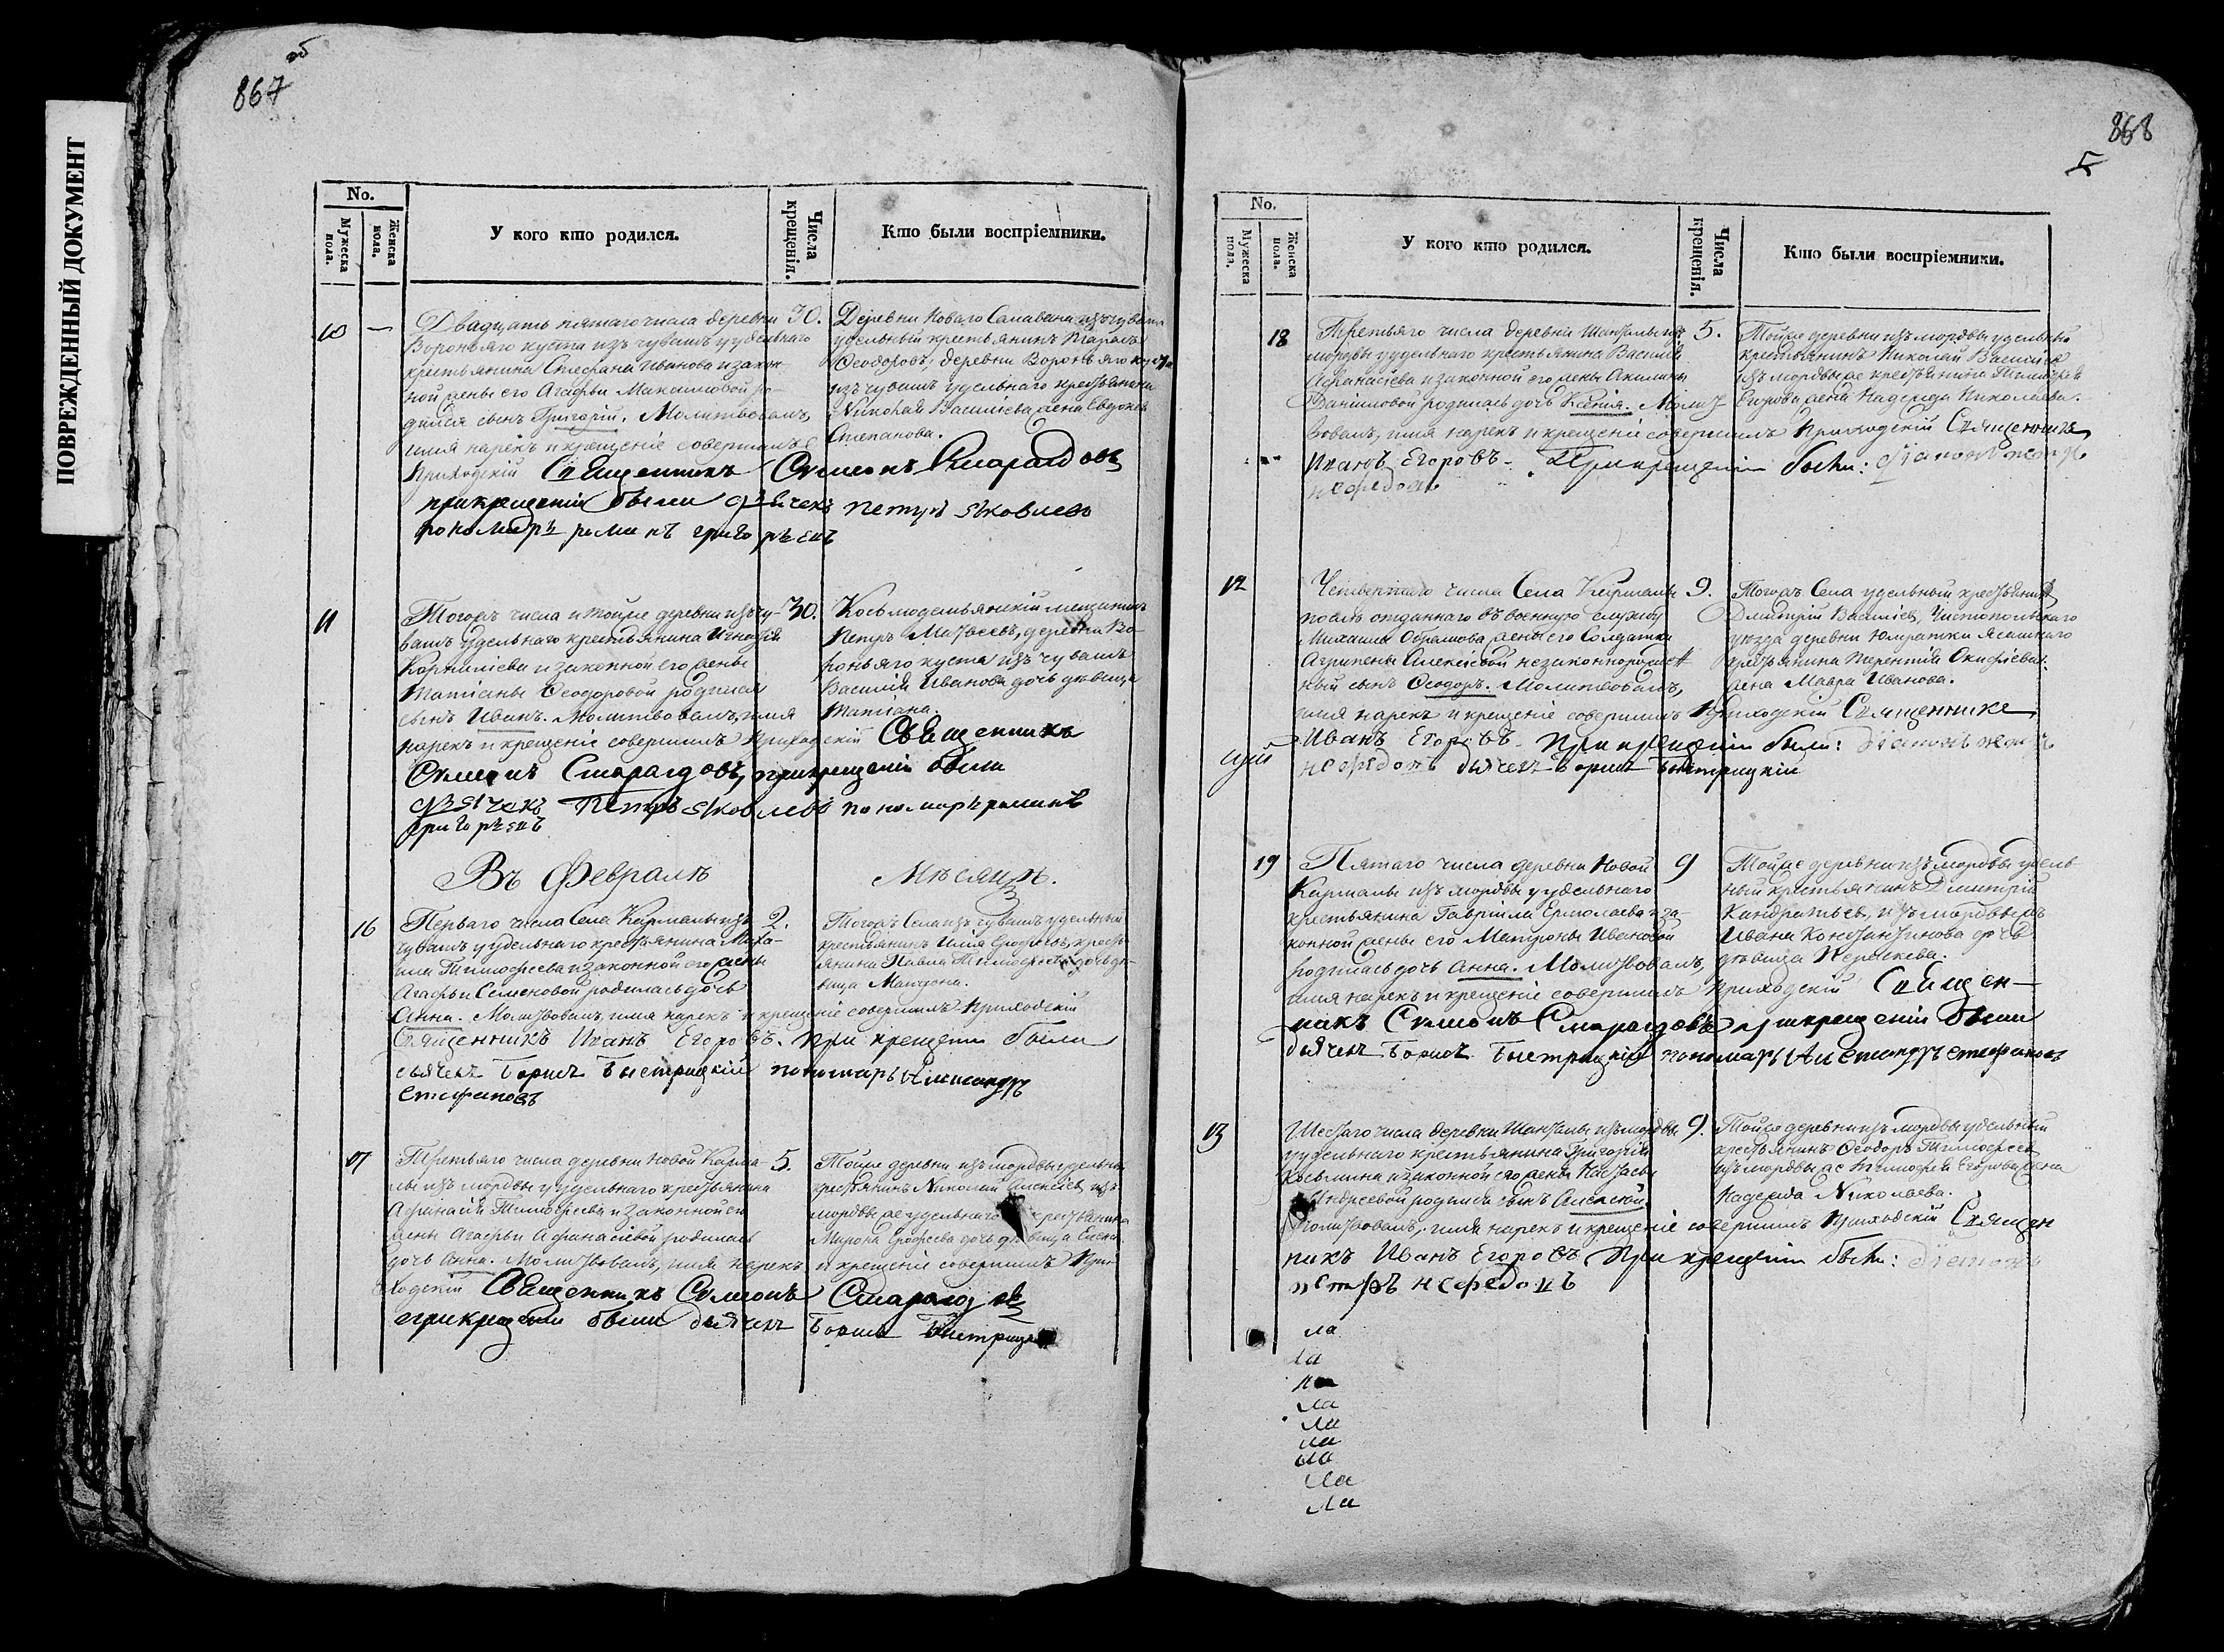 ПОВРЕЖДЕННЫЙ ДОКУМЕНТ
об
867
No.
Мужеска пола.
Женска пола.
У кого кто родился.
Числа крещенія.
Кто были воспріемники.
10
—
Двадцать пятаго числа деревни
Вороньяго куста изъ чувашъ у удельнаго
крестьянина Стефана Иванова и закон-
ной жены его Агафьи Максимовой ро-
дился сынъ Григорій. Молитвовалъ,
имя нарекъ и крещеніе совершилъ
Приходскій Священникъ Симеонъ Смарагдовъ
при крещеніи были дьячекъ Петръ Яковлевъ
пономарь романъ григорьевъ
30.
Деревни Новаго Салавана изъ чувашъ
удельный крестьянинъ Тарасъ
Ѳеодоровъ, деревни Вороньяго куста
изъ чувашъ удельнаго крестьянина
Николая Васильева жена Евдокія
Степанова.
11
Тогожъ числа и тойже деревни изъ чу-
вашъ удельнаго крестьянина Игнатія
Карнилієва и законной его жены
Татіаны Ѳеодоровой родился
сынъ Иванъ. Молитвовалъ, имя
нарекъ и крещеніе совершилъ Приходскій Священникъ
Симеонъ Смарагдовъ, при крещеніи были
дьячекъ Петръ Яковлевъ пономарь романъ
григорьевъ
30.
Козьмодемьянскій мещанинъ
Петръ Матвеевъ, деревни Во-
роньяго куста изъ чувашъ
Василія Иванова дочь девица
Татіана.
Въ Февралѣ Мѣсяцѣ.
16
Перваго числа Села Кармалы изъ
чувашъ у удельнаго крестьянина Миха-
ила Тимофеева и законной его жены
Агафьи Семеновой родилась дочь
Анна. Молитвовалъ, имя нарекъ и крещеніе совершилъ Приходскій
Священникъ Иванъ Егоровъ. при крещеніи были
дьячекъ Борисъ Быстрицкій пономарь Александръ
Стефановъ
2.
Тогожъ Села изъ чувашъ удельный
крестьянинъ Илья Ерофеевъ, кресть-
янина Павла Тимофеева дочь де-
вица Матрона.
17
Третьяго числа деревни Новой Карма-
лы изъ мордвы у удельнаго крестьянина
Афанасія Тимофеева и законной его
жены Агафьи Афанасіевой родилась
дочь Анна. Молитвовалъ, имя нарекъ и крещеніе совершилъ При-
ходскій Священникъ Симеонъ Смарагдовъ
при крещеніи были дьячекъ Борисъ Быстрицкій
5.
Тойже деревни изъ мордвы удельный
крестьянинъ Николай Алексеевъ, изъ
мордвы же удельнаго крестьянина
Мирона Ерофеева дочь девица
868
5
No.
Мужеска пола.
Женска пола.
У кого кто родился.
Числа крещенія.
Кто были воспріемники.
18
Третьяго числа деревни Шанталы изъ
мордвы у удельнаго крестьянина Василія
Афанасіева и законной его жены Акилины
Даниловой родилась дочь Ксенія. Молит-
вовалъ, имя нарекъ и крещеніе совершилъ Приходскій Священникъ
Иванъ Егоровъ. При крещеніи были: діаконъ петръ
нефедовъ
5.
Тойже деревни изъ мордвы удельный
крестьянинъ Николай Васильевъ
изъ мордвы же крестьянина Тимофея
Егорова жена Надежда Николаева.
12
Четвертаго числа Села Кармалы
послѣ отданнаго въ военную службу
Михаила Абрамова жены его Солдатки
Агрипены Алексіевой незаконнорожден-
ный сынъ Ѳеодоръ. Молитвовалъ,
имя нарекъ и крещеніе совершилъ Приходскій Священникъ
Иванъ Егоровъ. При крещеніи были: діаконъ петръ
нефедовъ дьячекъ Борисъ Быстрицкій
9.
Тогожъ Села удельный крестьянинъ
Дмитрій Васильевъ, Чистопольскаго
уезда деревни Юлраткн ясашнаго
крестьянина Терентія
жена Мавра Иванова.
19
Пятаго числа деревни Новой
Кармалы изъ мордвы у удельнаго
крестьянина Гавріила Ермолаева и за-
конной жены его Матроны Ивановой
родилась дочь Анна. Молитвовалъ,
имя нарекъ и крещеніе совершилъ Приходскій Священ-
никъ Симеонъ Смарагдовъ при крещеніи были
дьячекъ Борисъ Быстрицкій пономарь Александръ Стефановъ
9
Тойже деревни изъ мордвы удель-
ный крестьянинъ Дмитрій
Кандратьевъ, изъ мордвы же
Ивана Константинова дочь
девица
13
Шестаго числа деревни Шанталы изъ мордвы
у удельнаго крестьянина Григорія
Козьмина и законной его жены Настасьи
Андреевой родился сынъ Алексей.
Молитвовалъ, имя нарекъ и крещеніе совершилъ Приходскій Священ
никъ Иванъ Егоровъ При крещеніи были: діаконъ
петръ нефедовъ
9.
Тойже деревни изъ мордвы удельный
крестьянинъ Ѳеодоръ Тимофеевъ
изъ мордвы же Тимофея Егорова жена
Надежда Николаева.
ла
ла
ла
ла
ла
ла
ла
ла